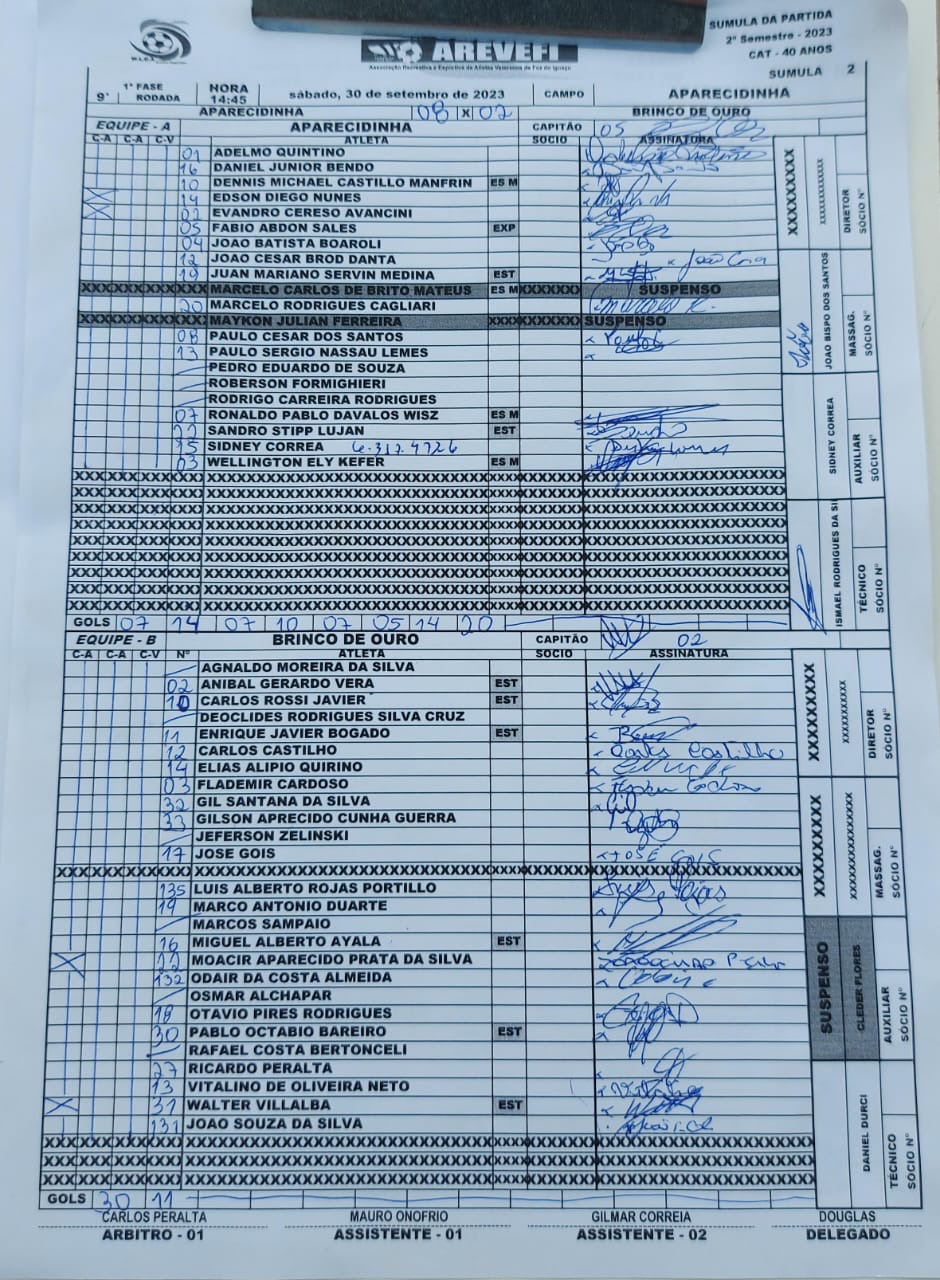 SUMULA DA PARTIDA
2º Semestre - 2023
CAT - 40 ANOS
SUMULA 2
AREVEFI
Associação Recreativa e Esportiva de Atletas Veteranos de Foz do Iguaçu
9ª 1ª FASE RODADA HORA 14:45 sábado, 30 de setembro de 2023 CAMPO APARECIDINHA
APARECIDINHA 08 X 02 BRINCO DE OURO
EQUIPE - A APARECIDINHA CAPITÃO 05
C-A C-A C-V ATLETA SOCIO ASSINATURA
01 ADELMO QUINTINO
16 DANIEL JUNIOR BENDO
10 DENNIS MICHAEL CASTILLO MANFRIN ES M
14 EDSON DIEGO NUNES
02 EVANDRO CERESO AVANCINI
05 FABIO ABDON SALES EXP
04 JOAO BATISTA BOAROLI
12 JOAO CESAR BROD DANTA
19 JUAN MARIANO SERVIN MEDINA EST
XXXXXXXXXXXXXXXXXX MARCELO CARLOS DE BRITO MATEUS ES M XXXXXXX SUSPENSO
20 MARCELO RODRIGUES CAGLIARI
XXXXXXXXXXXXXXXXXX MAYKON JULIAN FERREIRA XXXX XXXXXXX SUSPENSO
08 PAULO CESAR DOS SANTOS
13 PAULO SERGIO NASSAU LEMES
PEDRO EDUARDO DE SOUZA
ROBERSON FORMIGHIERI
RODRIGO CARREIRA RODRIGUES
07 RONALDO PABLO DAVALOS WISZ ES M
SANDRO STIPP LUJAN EST
15 SIDNEY CORREA 6.312.4726
03 WELLINGTON ELY KEFER ES M
GOLS 07 14 07 10 07 05 14 20
XXXXXXXXX XXXXXXXXXXXXX DIRETOR SÓCIO Nº
JOAO BISPO DOS SANTOS MASSAG. SÓCIO Nº
SIDNEY CORREA AUXILIAR SÓCIO Nº
ISMAEL RODRIGUES DA SI TÉCNICO SÓCIO Nº
EQUIPE - B BRINCO DE OURO CAPITÃO 02
C-A C-A C-V Nº ATLETA SOCIO ASSINATURA
AGNALDO MOREIRA DA SILVA
02 ANIBAL GERARDO VERA EST
10 CARLOS ROSSI JAVIER EST
DEOCLIDES RODRIGUES SILVA CRUZ
11 ENRIQUE JAVIER BOGADO EST
12 CARLOS CASTILHO Carlos Castilho
14 ELIAS ALIPIO QUIRINO
03 FLADEMIR CARDOSO
32 GIL SANTANA DA SILVA Gil
33 GILSON APRECIDO CUNHA GUERRA
JEFERSON ZELINSKI
17 JOSE GOIS JOSE GOIS
135 LUIS ALBERTO ROJAS PORTILLO
19 MARCO ANTONIO DUARTE
MARCOS SAMPAIO
16 MIGUEL ALBERTO AYALA EST
MOACIR APARECIDO PRATA DA SILVA
132 ODAIR DA COSTA ALMEIDA
OSMAR ALCHAPAR
18 OTAVIO PIRES RODRIGUES
30 PABLO OCTABIO BAREIRO EST
RAFAEL COSTA BERTONCELI
27 RICARDO PERALTA
13 VITALINO DE OLIVEIRA NETO
31 WALTER VILLALBA EST
131 JOAO SOUZA DA SILVA
GOLS 30 11
XXXXXXXXX XXXXXXXXXX DIRETOR SÓCIO Nº
XXXXXXXXX XXXXXXXXXXXXXXXX MASSAG. SÓCIO Nº
SUSPENSO CLEDER FLORES AUXILIAR SÓCIO Nº
DANIEL DURCI TÉCNICO SÓCIO Nº
CARLOS PERALTA MAURO ONOFRIO GILMAR CORREIA DOUGLAS
ARBITRO - 01 ASSISTENTE - 01 ASSISTENTE - 02 DELEGADO